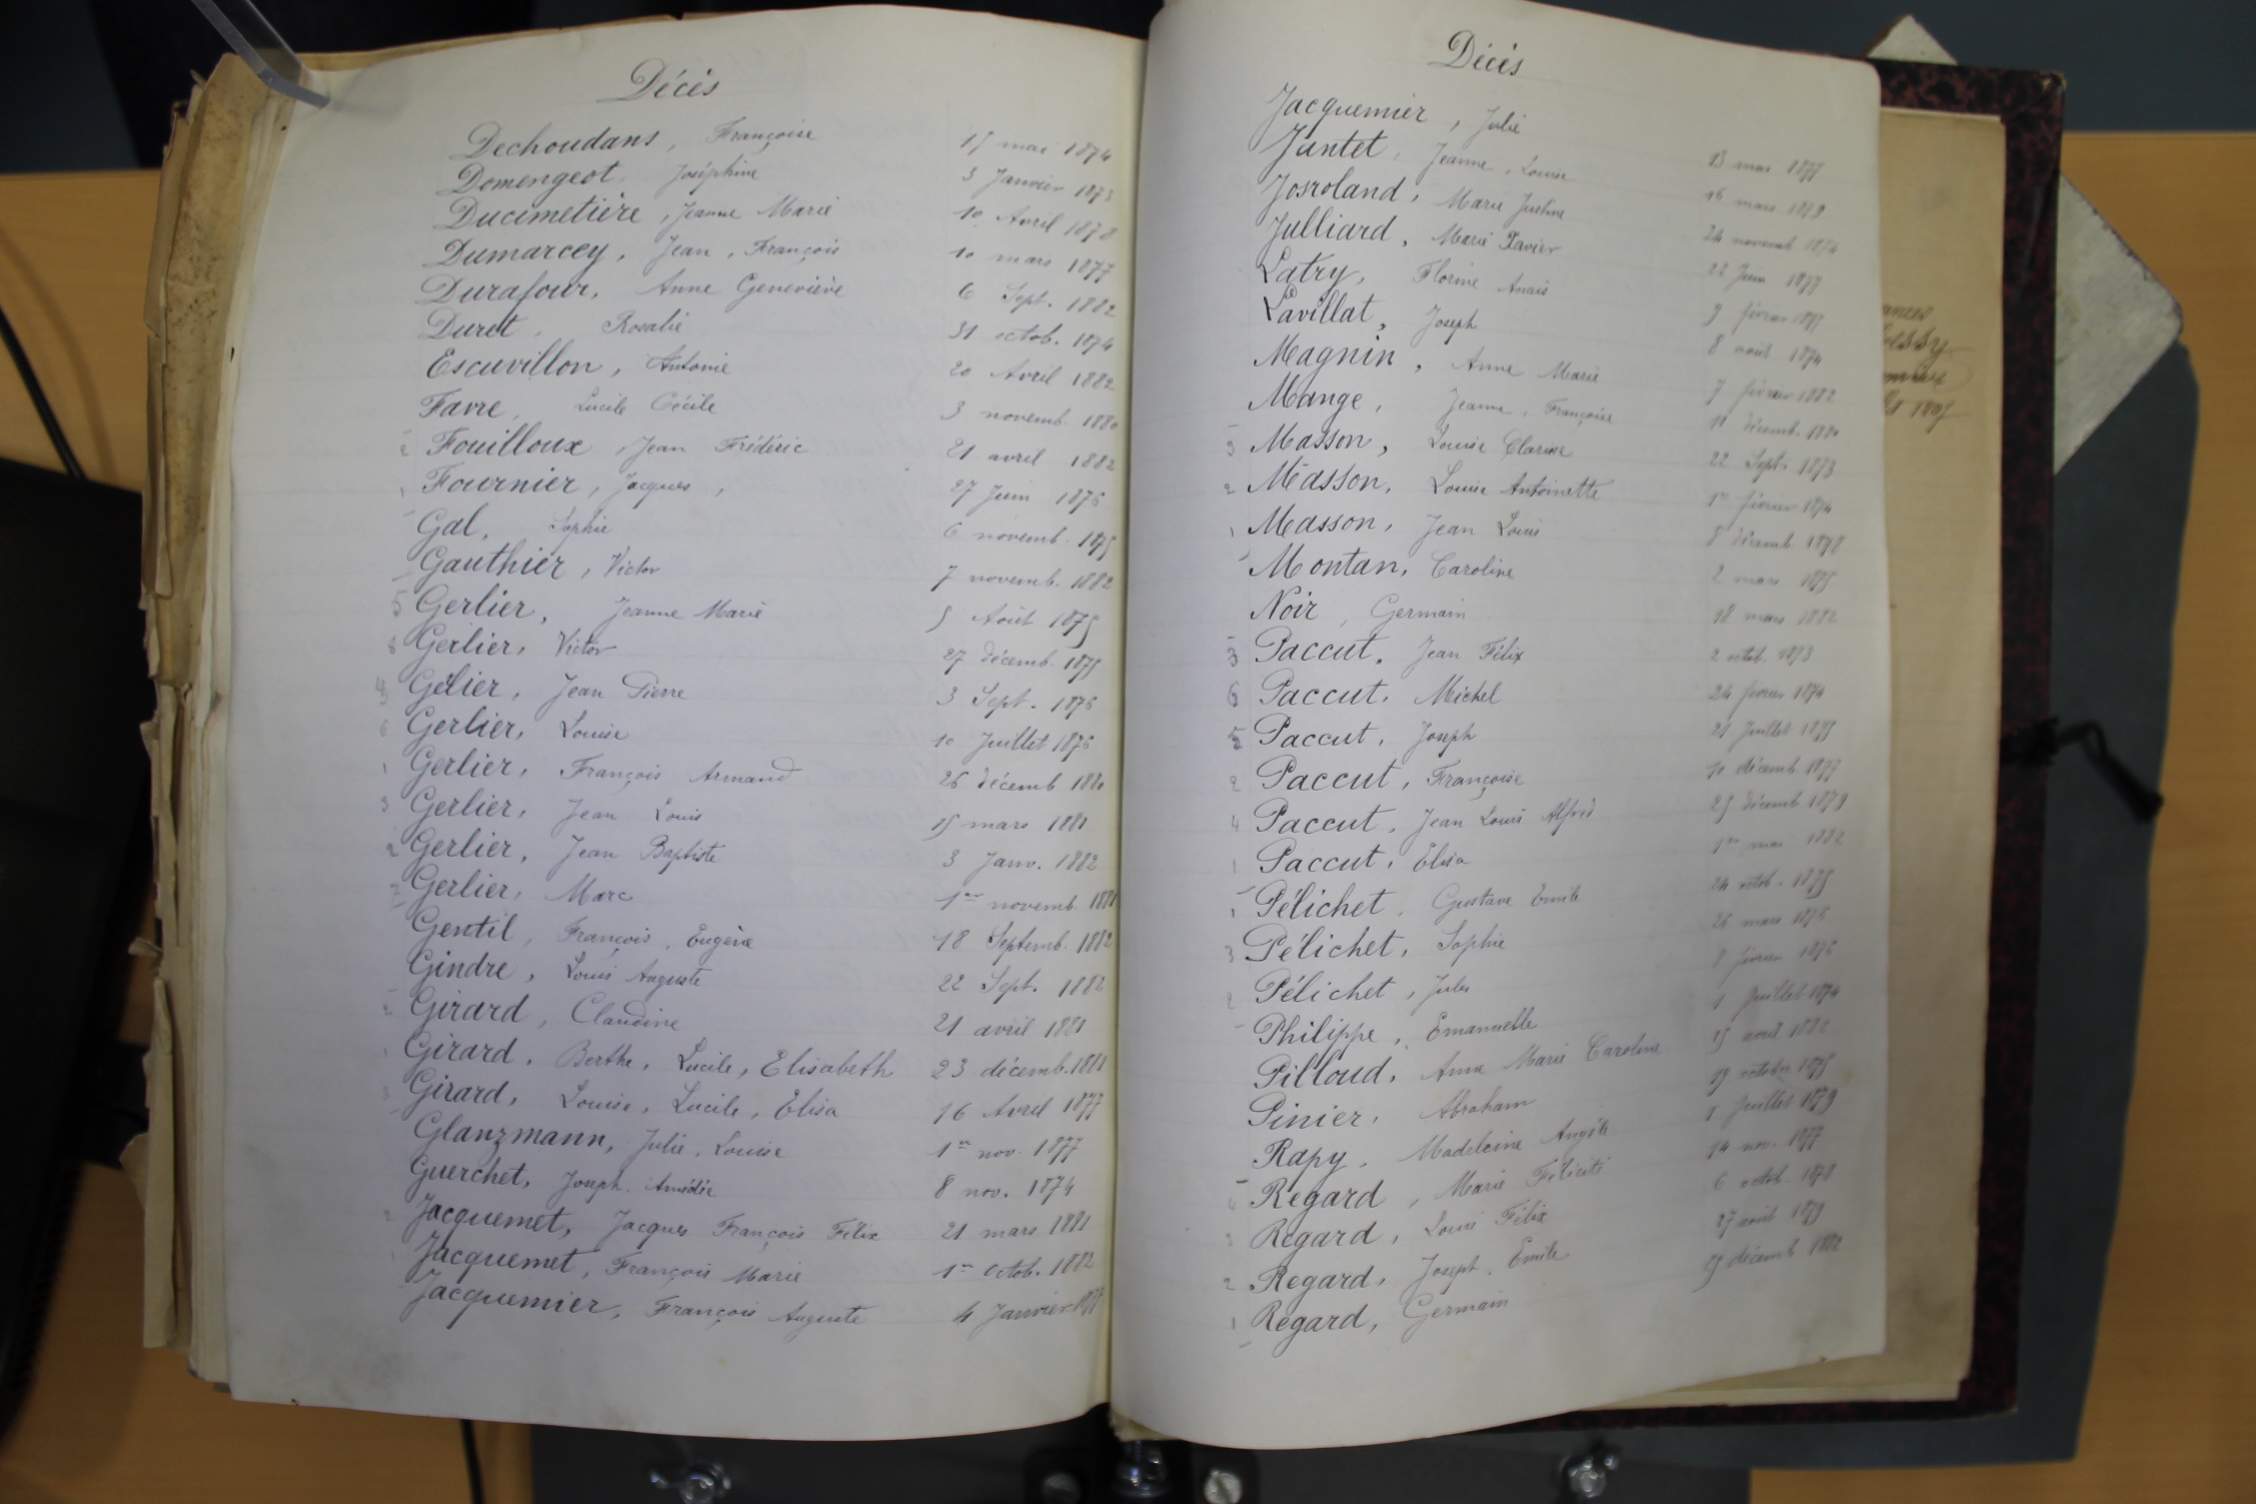 Décès
Dechoudans, Françoise 15 mai 1874
Domengeot. Joséphine 3 Janvier 1873
Ducimetière, Jeanne Marie 10 Avril 1878
Dumarcey, Jean, François 10 mars 1877
Durafour, Anne Geneviève 6 Sept. 1882
Duret, Rosalie 31 octob. 1874
Escuvillon, Antonie 20 Avril 1882
Favre, Lucile Cécile 3 novemb. 1880
2 Fouilloux, Jean Frédéric 21 avril 1882
1 Fournier, Jacques, 27 Juin 1876
Gal, Sophie 6 novemb. 1875
Gauthier, Victor 7 novemb. 1882
5 Gerlier, Jeanne Marie 5 Août 1875
8 Gerlier, Victor 27 décemb. 1875
4 Gelier, Jean Pierre 3 Sept. 1876
6 Gerlier, Louise 10 Juillet 1876
1 Gerlier, François Armand 26 décemb 1880
3 Gerlier, Jean Louis 15 mars 1881
2 Gerlier, Jean Baptiste 3 Janv. 1882
7 Gerlier, Marc 1er novemb. 1881
Gentil, François, Eugène 18 Septemb. 1882
Gindre, Louis Auguste 22 Sept. 1882
2 Girard, Claudine 21 avril 1881
1 Girard, Berthe, Lucile, Elisabeth 23 décemb. 1881
3 Girard, Louise, Lucile, Elisa 16 Avril 1877
Glanzmann, Julie, Louise 1er nov. 1877
Guerchet, Joseph Amédée 8 nov. 1874
2 Jacquemet, Jacques François Félix 21 mars 1881
1 Jacquemet, François Marie 1er Octob. 1882
Jacquemier, François Auguste 4 Janvier 1877
Décès
Jacquemier, Julie 13 mars 1877
Jantet, Jeanne, Louise 16 mars 1879
Josroland, Marie Justine 24 novemb 1874
Julliard, Marie Xavier 22 Juin 1877
Latry, Florine Anaïs 9 février 1877
Lavillat, Joseph 8 août 1874
Magnin, Anne Marie 7 février 1882
Mange, Jeanne, Françoise 11 décemb. 1880
3 Masson, Louise Clarisse 22 Sept. 1873
2 Masson, Louise Antoinette 1er février 1874
1 Masson, Jean Louis 8 décemb 1878
Montan, Caroline 2 mars 1875
Noir, Germain 18 mars 1882
3 Paccut, Jean Félix 2 octob. 1873
6 Paccut, Michel 24 février 1874
5 Paccut, Joseph 21 Juillet 1875
2 Paccut, Françoise 10 décemb 1877
4 Paccut, Jean Louis Alfred 29 décemb 1879
1 Paccut, Elisa 1er mai 1882
1 Pélichet, Gustave Emile 24 octob. 1875
3 Pélichet, Sophie 26 mars 1876
2 Pélichet, Jules 8 février 1876
Philippe, Emanuelle 1 Juillet 1874
Pilloud, Anna Marie Caroline 15 avril 1882
Pinier, Abraham 19 octobre 1875
Rapy, Madeleine Angèle 8 Juillet 1879
4 Regard, Marie Félicité 14 nov. 1877
3 Regard, Louis Félix 6 octob. 1878
2 Regard, Joseph, Emile 27 août 1879
1 Regard, Germain 29 décemb 1882